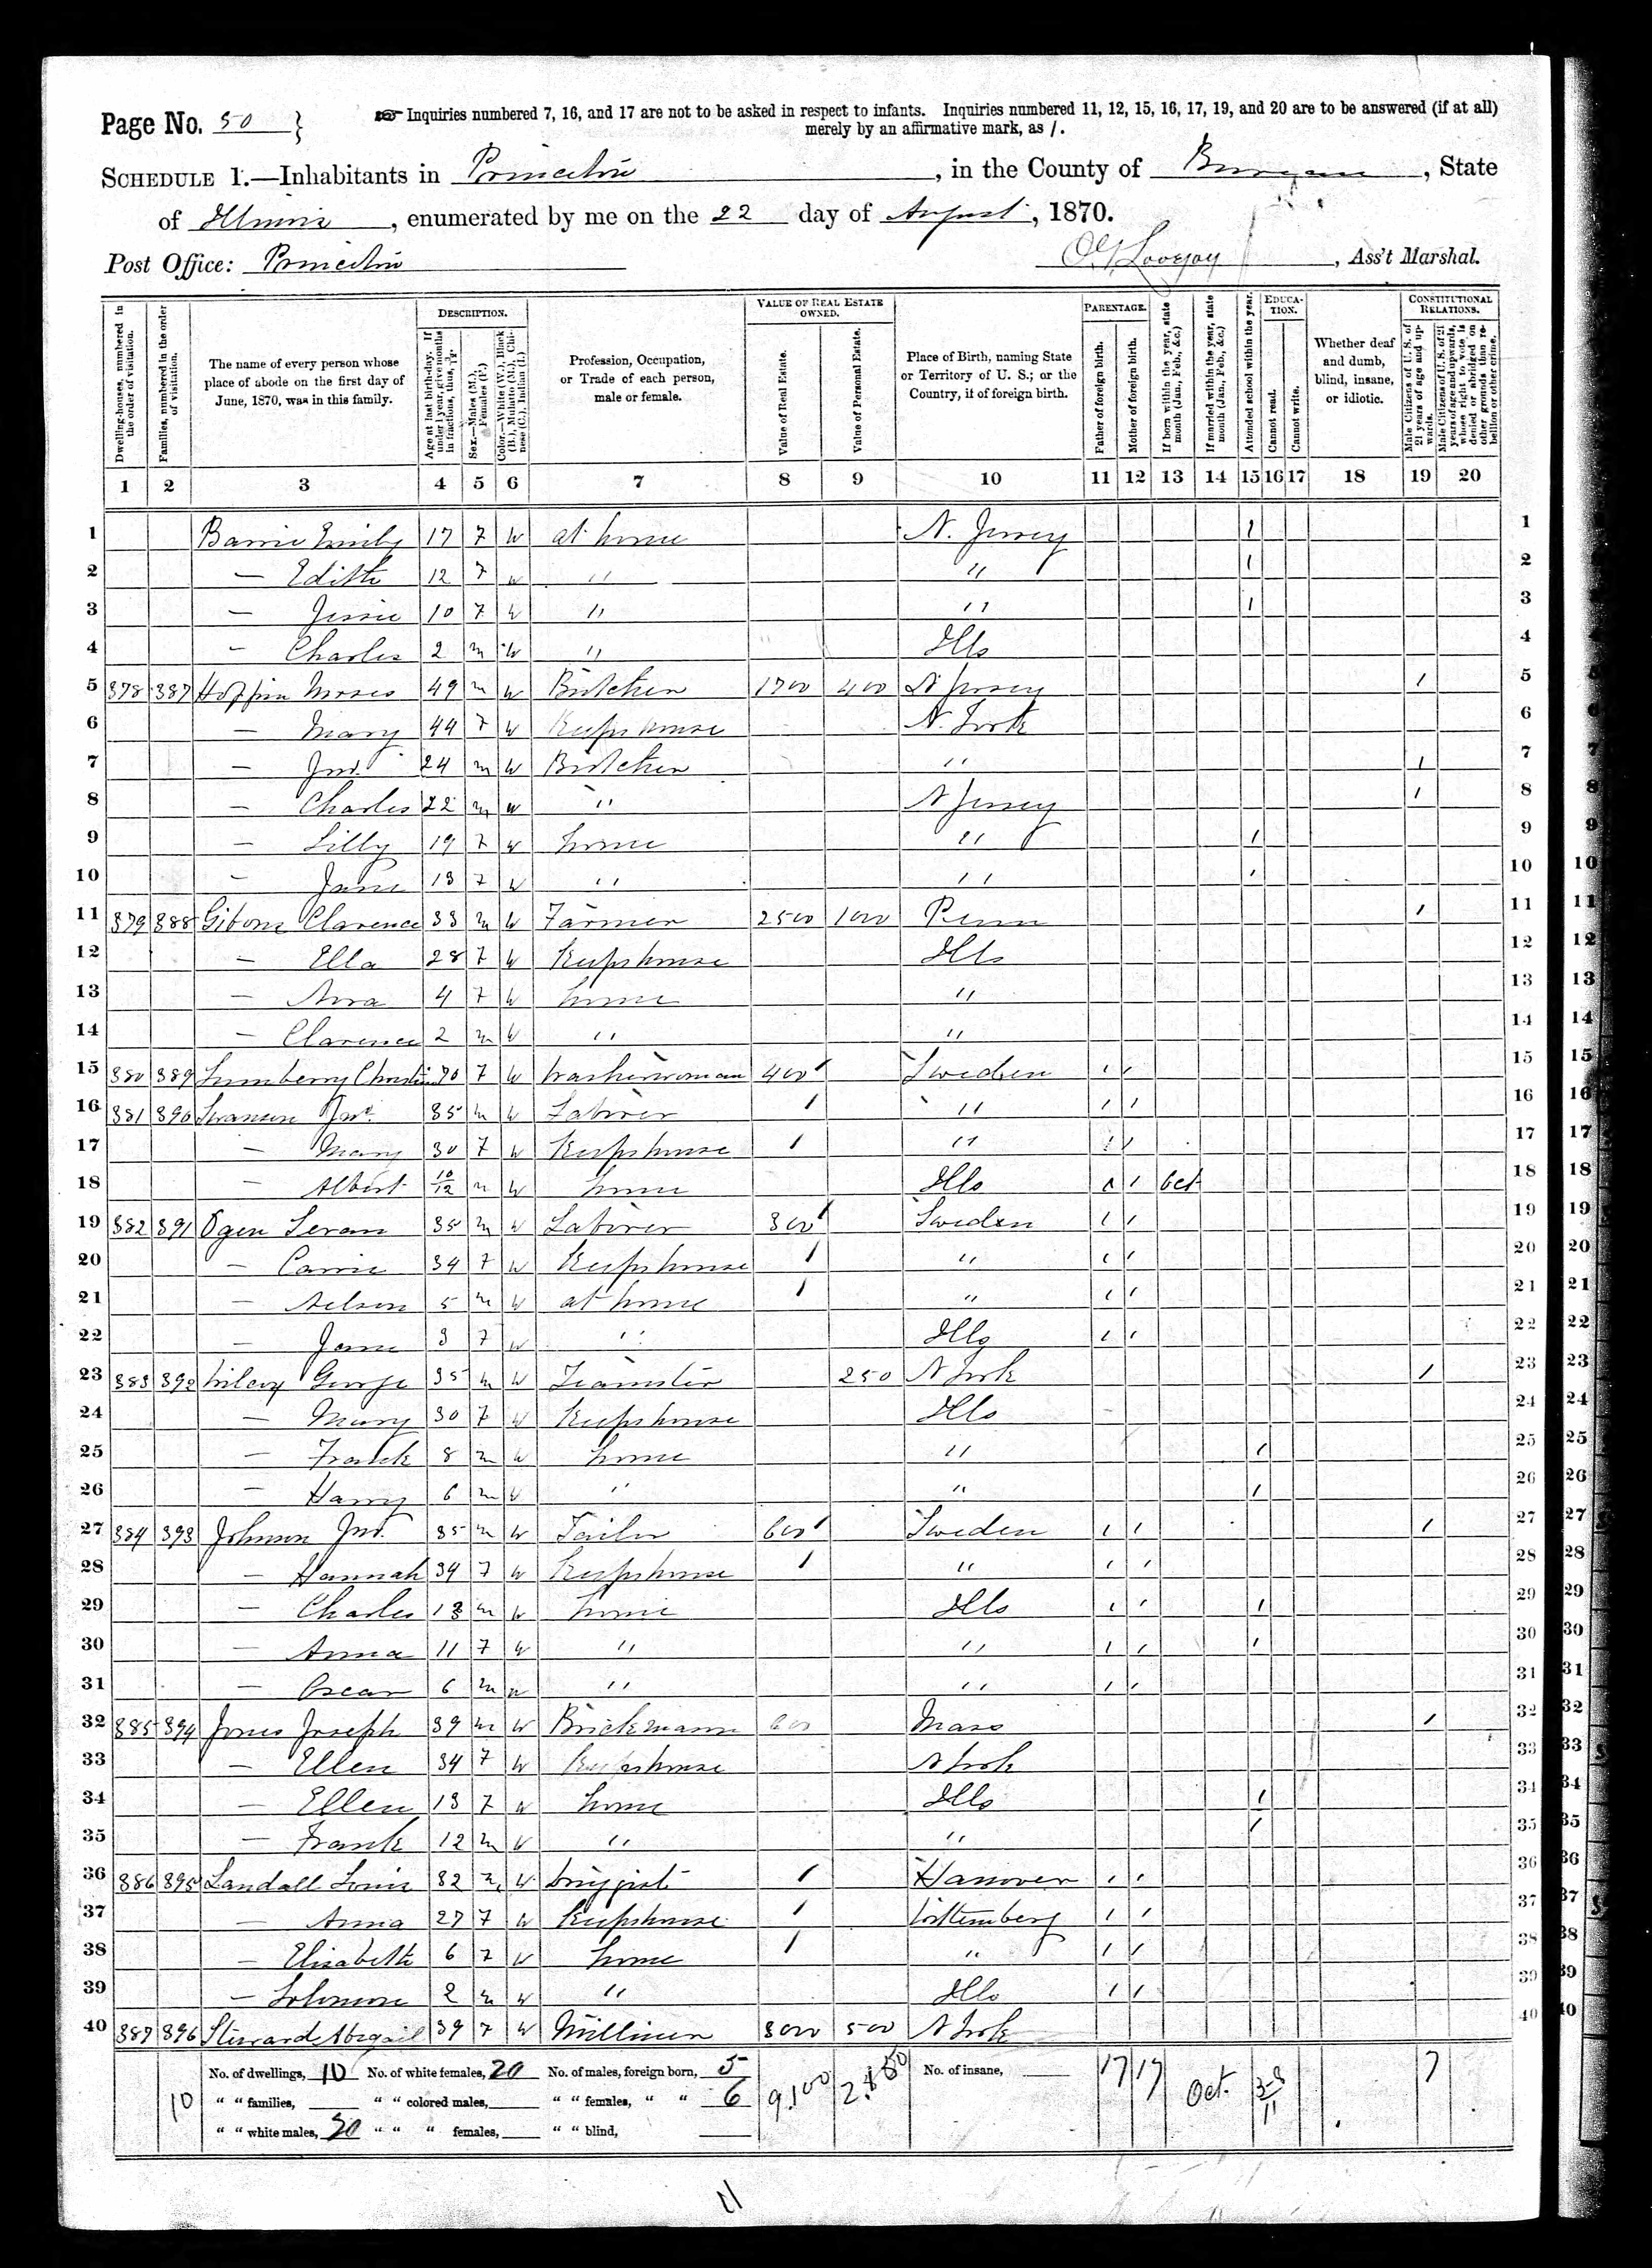 Page No. 50 }
☞ Inquiries numbered 7, 16, and 17 are not to be asked in respect to infants. Inquiries numbered 11, 12, 15, 16, 17, 19, and 20 are to be answered (if at all)
merely by an affirmative mark, as /.
SCHEDULE 1.—Inhabitants in Princeton, in the County of Bureau, State
of Illinois, enumerated by me on the 22 day of August, 1870.
Post Office: Princeton
Lovejoy, Ass't Marshal.
Dwelling-houses, numbered in the order of visitation.
Families, numbered in the order of visitation.
The name of every person whose place of abode on the first day of June, 1870, was in this family.
DESCRIPTION.
Age at last birth-day. If under 1 year, give months in fractions, thus,
Sex.—Males (M.), Females (F.)
Color.—White (W.), Black (B.), Mulatto (M.), Chinese (C.), Indian (I.)
Profession, Occupation, or Trade of each person, male or female.
VALUE OF REAL ESTATE OWNED.
Value of Real Estate.
Value of Personal Estate.
Place of Birth, naming State or Territory of U. S.; or the Country, if of foreign birth.
PARENTAGE.
Father of foreign birth.
Mother of foreign birth.
If born within the year, state month (Jan., Feb., &c.)
If married within the year, state month (Jan., Feb., &c.)
Attended school within the year.
EDUCATION.
Cannot read.
Cannot write.
Whether deaf and dumb, blind, insane, or idiotic.
CONSTITUTIONAL RELATIONS.
Male Citizens of U. S. of 21 years of age and upwards.
Male Citizens of U. S. of 21 years of age and upwards, whose right to vote is denied or abridged on other grounds than rebellion or other crime.
1 2 3 4 5 6 7 8 9 10 11 12 13 14 15 16 17 18 19 20
1 Emily 17 F W at home N. Jersey / 1
2 — Edith 12 F W " " / 2
3 — Jessie 10 F W " " / 3
4 — Charles 2 m W " Ills 4
5 378 387 Moses 49 m W Butcher 1700 400 N Jersey / 5
6 — Mary 44 F W Keeps house N. York 6
7 — Jno. 24 m W Butcher " / 7
8 — Charles 22 m W " N Jersey / 8
9 — Lilly 19 F W home " / 9
10 — Jane 13 F W " " / 10
11 379 388 Clarence 33 m W Farmer 2500 1000 Penn / 11
12 — Ella 28 F W Keeps house Ills 12
13 — 4 F W home " 13
14 — Clarence 2 m W " " 14
15 380 389 F W Washerwoman 400 / Sweden / / 15
16 381 390 Swanson Jno. 35 m W Laborer / " / / 16
17 — Mary 30 F W Keeps house / " / / 17
18 — Albert 10/12 m W home Ills / / Oct 18
19 382 391 35 m W Laborer 300 / Sweden / / 19
20 — Carrie 34 F W Keeps house / " / / 20
21 — Nelson 5 m W at home / " / / 21
22 — Jane 3 F W " Ills / / 22
23 383 392 Wilcox George 35 m W Teamster 250 N York / 23
24 — Mary 30 F W Keeps house Ills 24
25 — Frank 8 m W home " / 25
26 — Harry 6 m W " " / 26
27 384 393 Johnson Jno. 35 m W Tailor 600 / Sweden / / / 27
28 — Hannah 34 F W Keeps house / " / / 28
29 — Charles 13 m W home Ills / / / 29
30 — Anna 11 F W " " / / / 30
31 — Oscar 6 m W " " / / 31
32 385 394 Jones Joseph 39 m W 600 Mass / 32
33 — Ellen 34 F W Keeps house N York 33
34 — Ellen 13 F W home Ills / 34
35 — Frank 12 m W " " / 35
36 386 395 Landall Louis 32 m W Druggist / Hanover / / 36
37 — Anna 27 F W Keeps house / Wittemberg / / 37
38 — Elisabeth 6 F W home / " / / 38
39 — Solomon 2 m W " Ills / / 39
40 387 396 Abigail 39 F W Milliner 3000 500 N York 40
No. of dwellings, 10 No. of white females, 20 No. of males, foreign born, 5 No. of insane,
10 " " families, " " colored males, " " females, " " 6 9,100 17 17 Oct. 7
" " white males, 20 " " " females, " " blind,
11